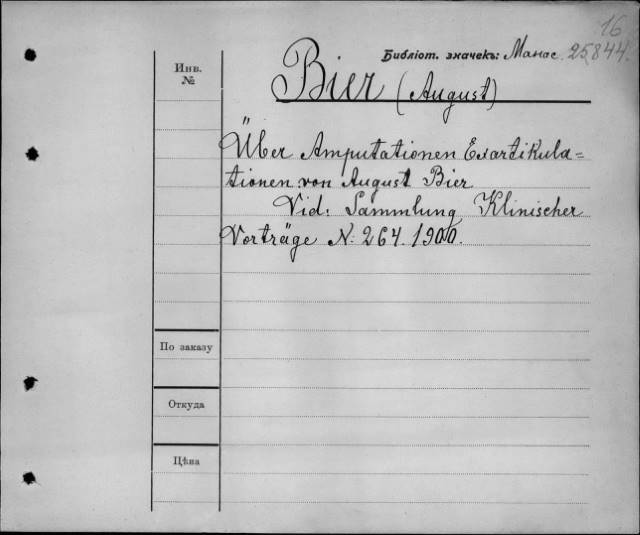 16
Библіот. значекъ: Манас. 25844.
Инв.
№
Bier (August)
Über Amputationen Exartikula=
tionen von August Bier
Vid: Sammlung Klinischer
Vorträge N: 264. 1900.
По заказу
Откуда
Цѣна